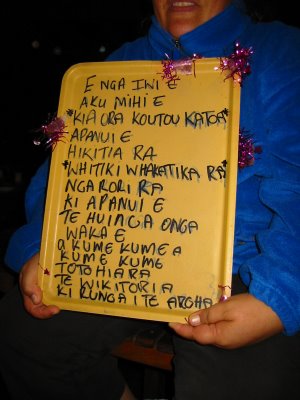 E NGA IWI E
AKU MIHI E
"KIA ORA KOUTOU KATOA"
APANUI E
HIKITIA RA
"WHITIKI WHAKATIKA RA
NGA RORI RA
KI APANUI E
TE HUINGA ONGA
WAKA E
A KUME KUME A
KUME KUME
TOTO HIARA
TE WIKITORIA
KI RUNGA I TE AROHA